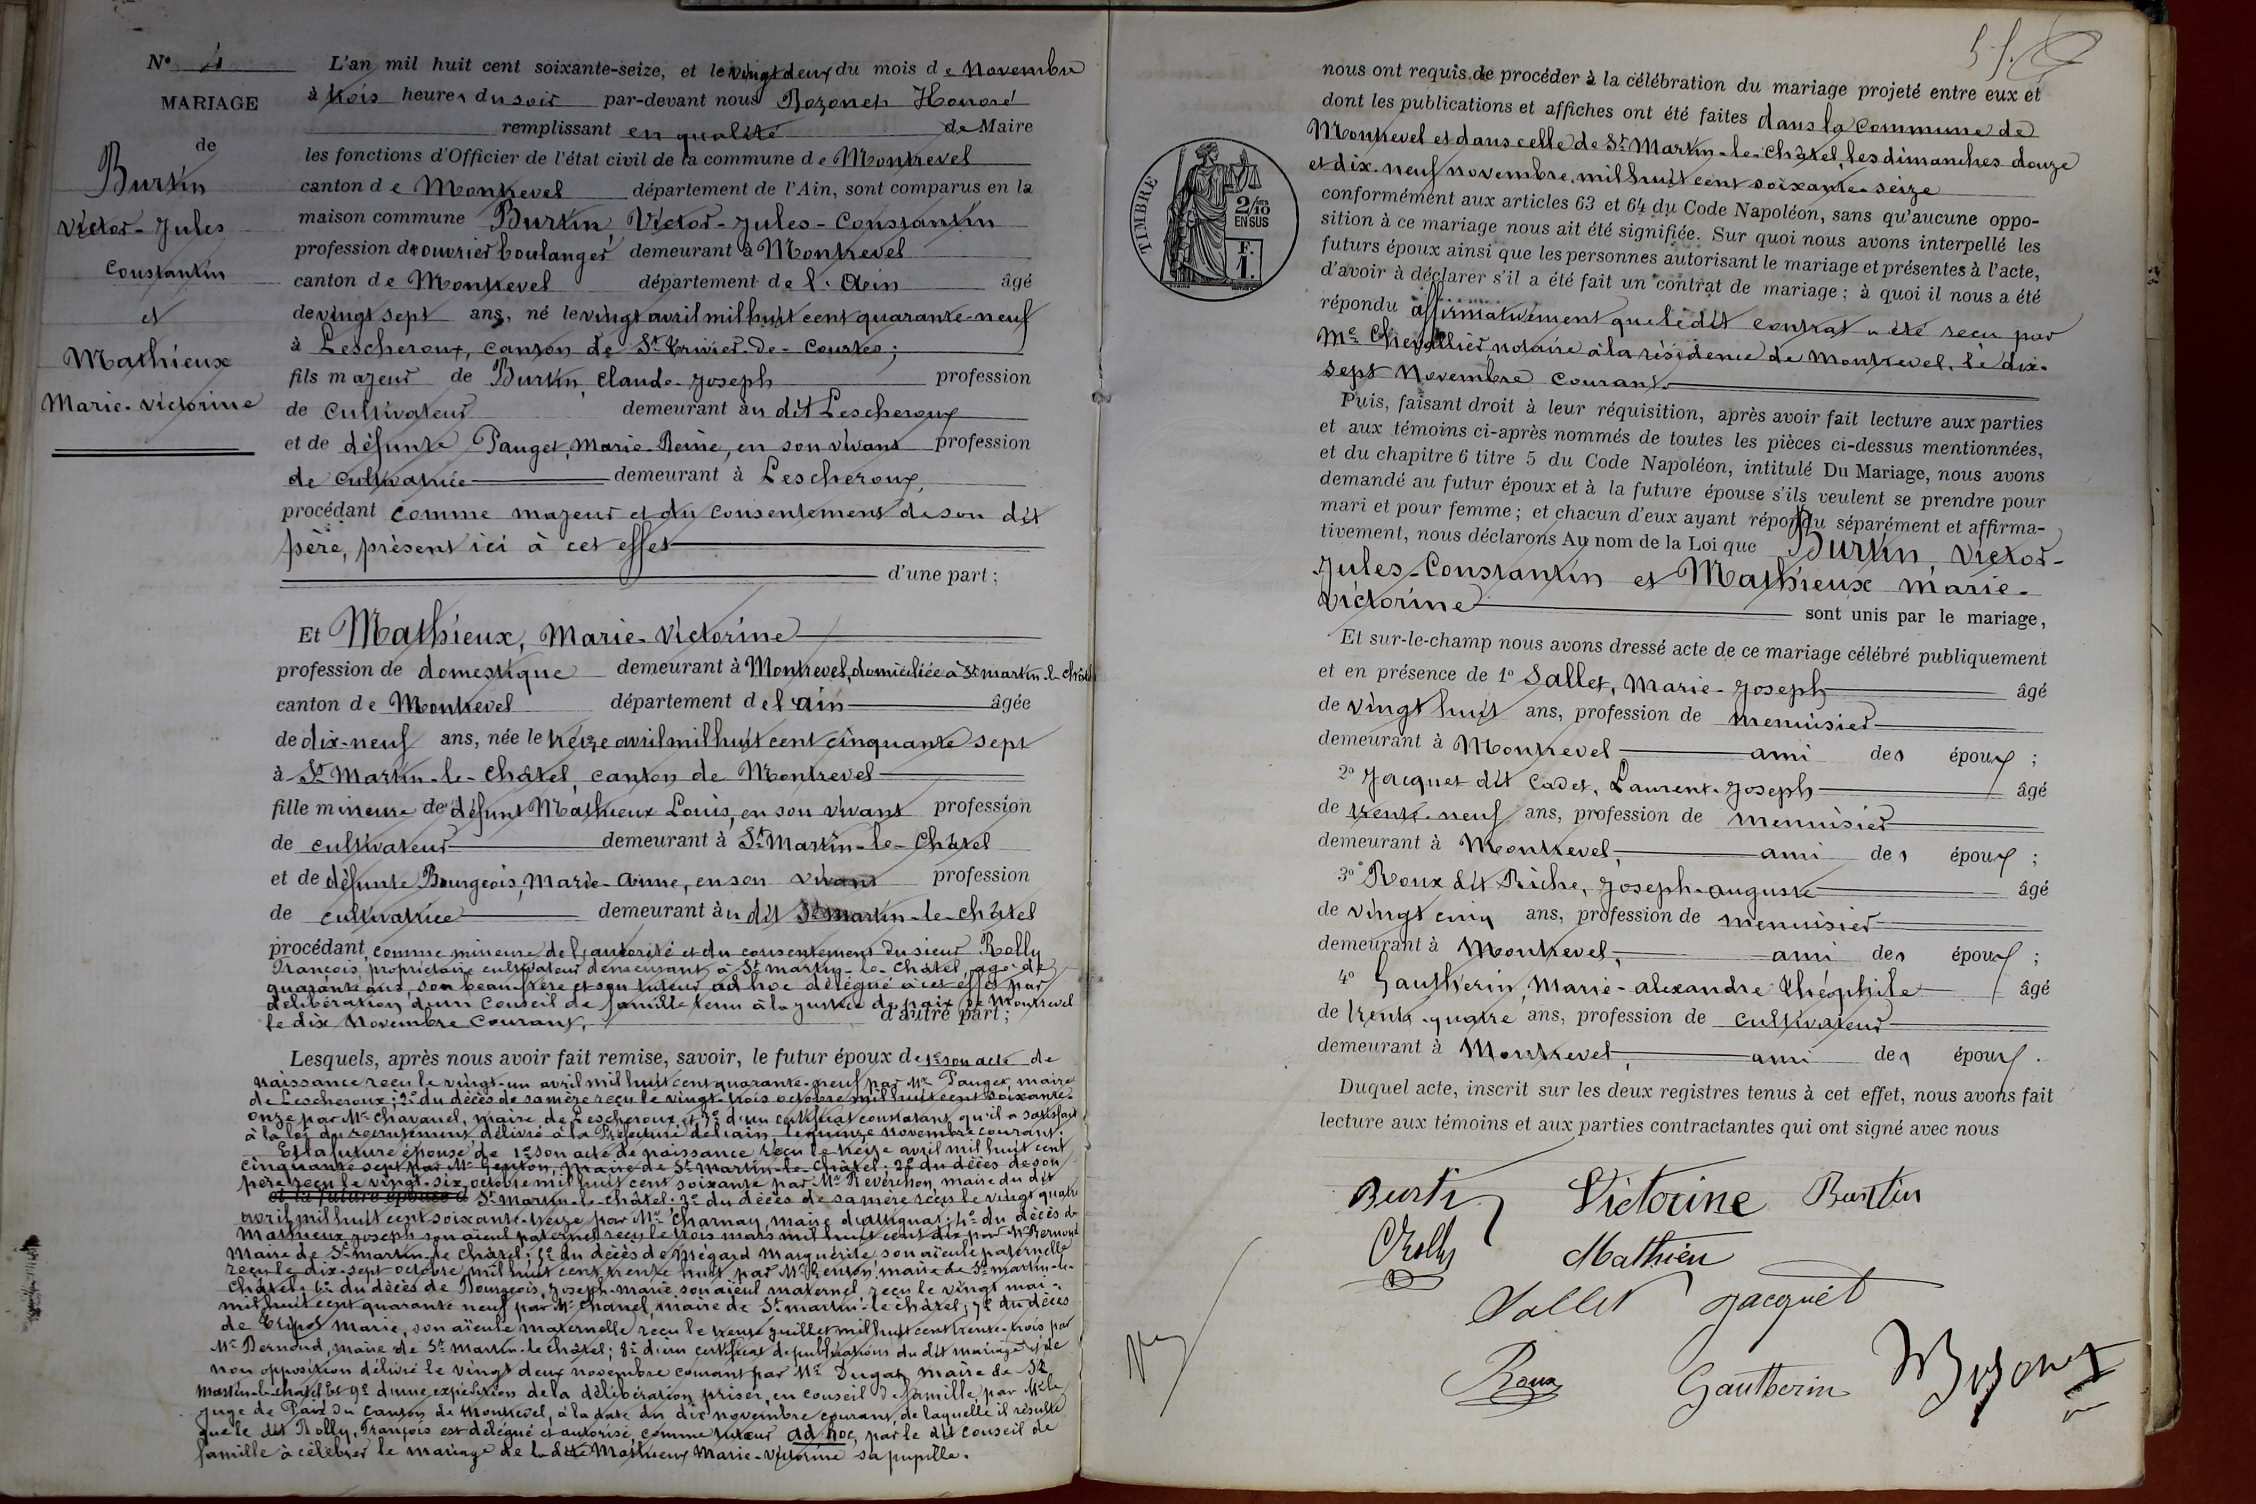 N° 4
MARIAGE
de
Burtin
Victor-Jules
Constantin
et
Mathieux
Marie-Victorine
L'an mil huit cent soixante-seize, et le vingt deux du mois de Novembre
à trois heures du soir par-devant nous Bozonet Honoré
remplissant en qualité de Maire
les fonctions d'Officier de l'état civil de la commune de Montrevel
canton de Montrevel département de l'Ain, sont comparus en la
maison commune Burtin Victor-Jules-Constantin
profession de ouvrier boulanger demeurant à Montrevel
canton de Montrevel département de l'Ain âgé
de vingt sept ans, né le vingt avril mil huit cent quarante-neuf
à Lescheroux, canton de St Trivier-de-Courtes;
fils majeur de Burtin Claude-Joseph profession
de cultivateur demeurant au dit Lescheroux
et de défunte Pauget, Marie-Reine, en son vivant profession
de cultivatrice demeurant à Lescheroux,
procédant comme majeur et du consentement de son dit
père, présent ici à cet effet
d'une part;
Et Mathieux, Marie-Victorine
profession de domestique demeurant à Montrevel, domiciliée à St Martin-le-Châtel
canton de Montrevel département de l'Ain âgée
de dix-neuf ans, née le treize avril mil huit cent cinquante sept
à St Martin-le-Châtel, canton de Montrevel
fille mineure de défunt Mathieux Louis, en son vivant profession
de cultivateur demeurant à St Martin-le-Châtel
et de défunte Bourgeois, Marie-Anne, en son vivant profession
de cultivatrice demeurant au dit St Martin-le-Châtel
procédant comme mineure de l'autorité et du consentement du sieur Rolly
François, propriétaire cultivateur demeurant à St Martin-le-Châtel, âgé de
quarante ans, son beau-frère et son tuteur ad hoc délégué à cet effet par
délibération d'un Conseil de famille tenu à la justice de paix de Montrevel
le dix Novembre courant, d'autre part;
Lesquels, après nous avoir fait remise, savoir, le futur époux de 1° son acte de
naissance reçu le vingt-un avril mil huit cent quarante-neuf par Mr Pauget, maire
de Lescheroux; 2° du décès de sa mère reçu le vingt-trois octobre mil huit cent soixante-
onze par Mr Chavanel, maire de Lescheroux et 3° d'un certificat constatant qu'il a satisfait
à la loi du recrutement délivré à la Préfecture de l'Ain le quinze Novembre courant.
Et la future épouse de 1° son acte de naissance reçu le treize avril mil huit cent
cinquante sept par Mr Genton, maire de St Martin-le-Châtel; 2° du décès de son
père reçu le vingt-six octobre mil huit cent soixante par Mr Reverchon, maire du dit
et la future épouse d St Martin-le-Châtel; 3° du décès de sa mère reçu le vingt quatre
avril mil huit cent soixante-treize par Mr Charnay, maire d'Attignat; 4° du décès de
Mathieux Joseph son aïeul paternel reçu le trois mars mil huit cent dix par Mr Bernoud
Maire de St Martin-le-Châtel; 5° du décès de Mégard Marguerite, son aïeule paternelle
reçu le dix-sept octobre mil huit cent trente huit par Mr Genton, maire de St Martin-le-
Châtel; 6° du décès de Bourgeois, Joseph-Marie, son aïeul maternel reçu le vingt mai
mil huit cent quarante neuf par Mr Chanel, maire de St Martin-le-Châtel; 7° du décès
de Marie, son aïeule maternelle reçu le trente juillet mil huit cent trente-trois par
Mr Bernoud, maire de St Martin-le-Châtel; 8° d'un certificat de publications du dit mariage et de
non opposition délivré le vingt deux novembre courant par Mr Dugat, maire de St
Martin-le-Châtel Et 9° d'une expédition de la délibération prise en conseil de famille par Mr le
Juge de Paix du canton de Montrevel, à la date du dix novembre courant, de laquelle il résulte
que le dit Rolly, François est délégué et autorisé, comme tuteur ad hoc, par le dit conseil de
famille à célébrer le mariage de la dite Mathieux Marie-Victorine sa pupille.
TIMBRE
2/10
EN SUS
F.
1.
nous ont requis de procéder à la célébration du mariage projeté entre eux et
dont les publications et affiches ont été faites dans la Commune de
Montrevel et dans celle de St Martin-le-Châtel, les dimanches douze
et dix-neuf novembre, mil huit cent soixante-seize
conformément aux articles 63 et 64 du Code Napoléon, sans qu'aucune oppo-
sition à ce mariage nous ait été signifiée. Sur quoi nous avons interpellé les
futurs époux ainsi que les personnes autorisant le mariage et présentes à l'acte,
d'avoir à déclarer s'il a été fait un contrat de mariage; à quoi il nous a été
répondu affirmativement que le dit contrat a été reçu par
Me Chevallier, notaire à la résidence de Montrevel, le dix-
sept Novembre courant.
Puis, faisant droit à leur réquisition, après avoir fait lecture aux parties
et aux témoins ci-après nommés de toutes les pièces ci-dessus mentionnées,
et du chapitre 6 titre 5 du Code Napoléon, intitulé Du Mariage, nous avons
demandé au futur époux et à la future épouse s'ils veulent se prendre pour
mari et pour femme; et chacun d'eux ayant répondu séparément et affirma-
tivement, nous déclarons Au nom de la Loi que Burtin, Victor-
Jules-Constantin et Mathieux Marie-
Victorine sont unis par le mariage,
Et sur-le-champ nous avons dressé acte de ce mariage célébré publiquement
et en présence de 1° Sallet, Marie-Joseph âgé
de vingt huit ans, profession de menuisier
demeurant à Montrevel ami des époux;
2° Jacquet dit Cadet, Laurent-Joseph âgé
de trente-neuf ans, profession de menuisier
demeurant à Montrevel, ami des époux;
3° Roux dit Riche, Joseph-Auguste âgé
de vingt cinq ans, profession de menuisier
demeurant à Montrevel, ami des époux;
4° Gautherin, Marie-Alexandre Théophile âgé
de trente-quatre ans, profession de cultivateur
demeurant à Montrevel, ami des époux.
Duquel acte, inscrit sur les deux registres tenus à cet effet, nous avons fait
lecture aux témoins et aux parties contractantes qui ont signé avec nous
Burtin Victorine Burtin
Rolly Mathieu
Sallet Jacquet
Roux Gautherin Bozonet